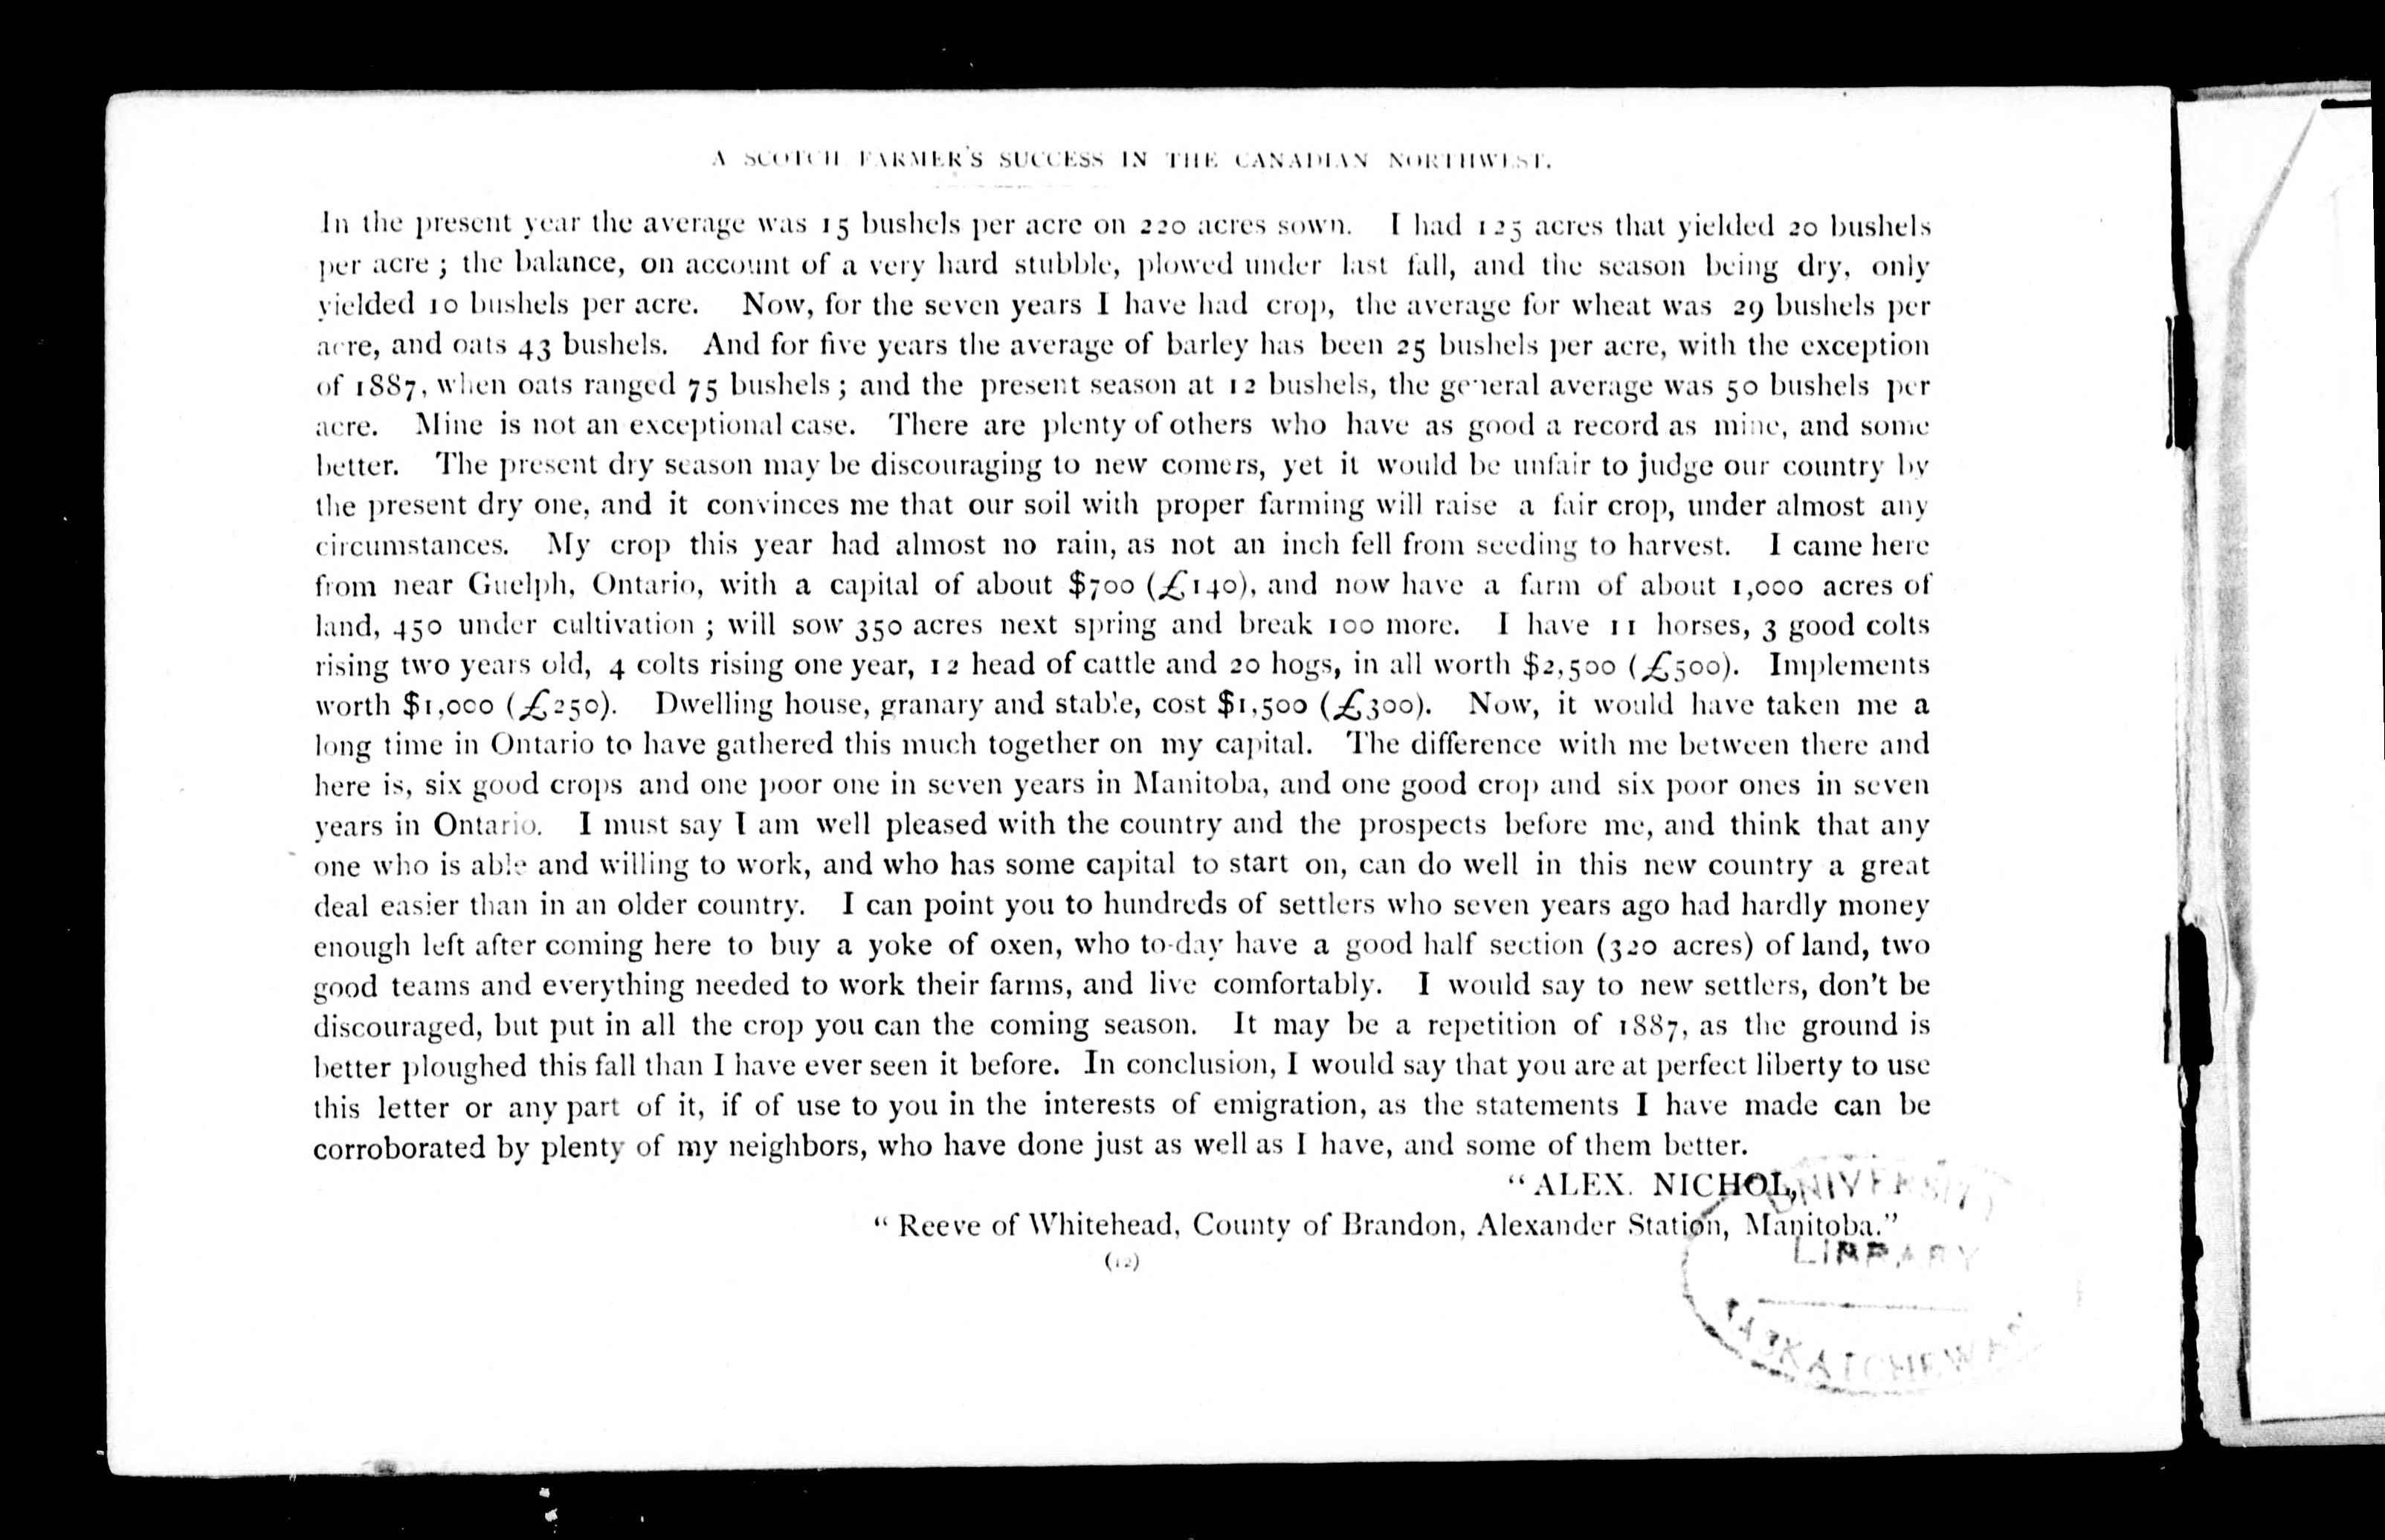 A SCOTCH FARMER'S SUCCESS IN THE CANADIAN NORTHWEST.
In the present year the average was 15 bushels per acre on 220 acres sown. I had 125 acres that yielded 20 bushels
per acre; the balance, on account of a very hard stubble, plowed under last fall, and the season being dry, only
yielded 10 bushels per acre. Now, for the seven years I have had crop, the average for wheat was 29 bushels per
acre, and oats 43 bushels. And for five years the average of barley has been 25 bushels per acre, with the exception
of 1887, when oats ranged 75 bushels; and the present season at 12 bushels, the general average was 50 bushels per
acre. Mine is not an exceptional case. There are plenty of others who have as good a record as mine, and some
better. The present dry season may be discouraging to new comers, yet it would be unfair to judge our country by
the present dry one, and it convinces me that our soil with proper farming will raise a fair crop, under almost any
circumstances. My crop this year had almost no rain, as not an inch fell from seeding to harvest. I came here
from near Guelph, Ontario, with a capital of about $700 (£140), and now have a farm of about 1,000 acres of
land, 450 under cultivation; will sow 350 acres next spring and break 100 more. I have 11 horses, 3 good colts
rising two years old, 4 colts rising one year, 12 head of cattle and 20 hogs, in all worth $2,500 (£500). Implements
worth $1,000 (£250). Dwelling house, granary and stable, cost $1,500 (£300). Now, it would have taken me a
long time in Ontario to have gathered this much together on my capital. The difference with me between there and
here is, six good crops and one poor one in seven years in Manitoba, and one good crop and six poor ones in seven
years in Ontario. I must say I am well pleased with the country and the prospects before me, and think that any
one who is able and willing to work, and who has some capital to start on, can do well in this new country a great
deal easier than in an older country. I can point you to hundreds of settlers who seven years ago had hardly money
enough left after coming here to buy a yoke of oxen, who to-day have a good half section (320 acres) of land, two
good teams and everything needed to work their farms, and live comfortably. I would say to new settlers, don't be
discouraged, but put in all the crop you can the coming season. It may be a repetition of 1887, as the ground is
better ploughed this fall than I have ever seen it before. In conclusion, I would say that you are at perfect liberty to use
this letter or any part of it, if of use to you in the interests of emigration, as the statements I have made can be
corroborated by plenty of my neighbors, who have done just as well as I have, and some of them better.
"ALEX. NICHOL,
"Reeve of Whitehead, County of Brandon, Alexander Station, Manitoba."
(12)
UNIVERSITY
LIBRARY
SASKATCHEWAN